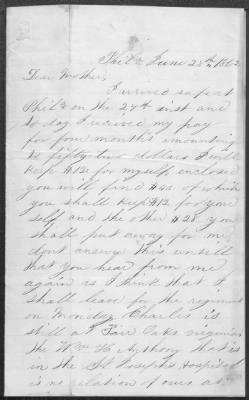 Phila June 28th, 1862
Dear Mother,
I arrived safe at
Phila on the 27th inst and
to day I received my pay
for four months amounting
to fifty two dollars I will
keep $12 for myself enclosed
you will find $40 of which
you shall keep $12 for your
self and the other $28 you
shall put away for me
dont answer this untill
that you hear from me
again as I think that I
shall leave for the regiment
on Monday Charles is
still at Fair Oaks virginia
the Wm H Anthony that is
in the St Josephs Hospital
is no relation of ours as